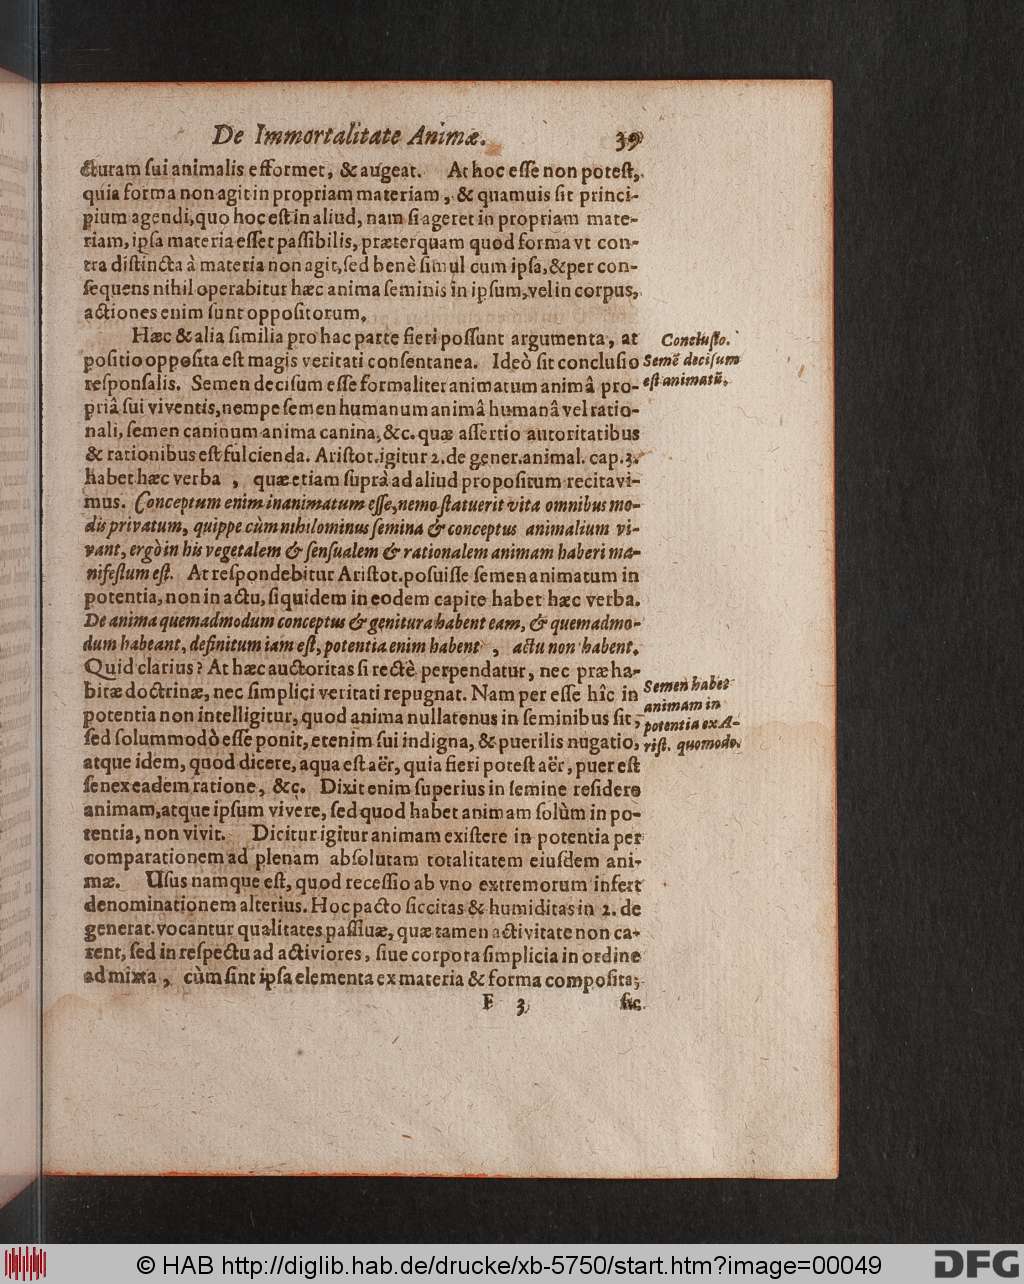 De Immortalitate Animæ. 39
cturam ſui animalis efformet, & augeat. At hoc eſſe non poteſt,
quia forma non agit in propriam materiam, & quamuis ſit princi-
pium agendi, quo hoc eſt in aliud, nam ſi ageret in propriam mate-
riam, ipſa materia eſſet paſſibilis, præterquam quod forma vt con-
tra diſtincta à materia non agit, ſed benè ſimul cum ipſa, & per con-
ſequens nihil operabitur hæc anima ſeminis in ipſum, vel in corpus,
actiones enim ſunt oppoſitorum.
Hæc & alia ſimilia pro hac parte fieri poſſunt argumenta, at
Concluſio.
poſitio oppoſita eſt magis veritati conſentanea. Ideò ſit concluſio
Semẽ deciſum
reſponſalis. Semen deciſum eſſe formaliter animatum animâ pro-
eſt animatũ.
priâ ſui viventis, nempe ſemen humanum animâ humanâ vel ratio-
nali, ſemen caninum anima canina, &c. quæ aſſertio autoritatibus
& rationibus eſt fulcienda. Ariſtot. igitur 2. de gener. animal. cap. 3.
habet hæc verba , quæ etiam ſuprà ad aliud propoſitum recitavi-
mus. Conceptum enim inanimatum eſſe, nemo ſtatuerit vita omnibus mo-
dis privatum, quippe cùm nihilominus ſemina & conceptus animalium vi-
vant, ergò in his vegetalem & ſenſualem & rationalem animam haberi ma-
nifeſtum eſt. At reſpondebitur Ariſtot. poſuiſſe ſemen animatum in
potentia, non in actu, ſiquidem in eodem capite habet hæc verba.
De anima quemadmodum conceptus & genitura habent eam, & quemadmo-
dum habeant, definitum iam eſt, potentia enim habent , actu non habent.
Quid clarius? At hæc auctoritas ſi rectè perpendatur, nec præha-
bitæ doctrinæ, nec ſimplici veritati repugnat. Nam per eſſe hîc in
Semen habet
potentia non intelligitur, quod anima nullatenus in ſeminibus ſit,
animam in
potentia ex A-
ſed ſolummodò eſſe ponit, etenim ſui indigna, & puerilis nugatio,
riſt. quomodo.
atque idem, quod dicere, aqua eſt aër, quia fieri poteſt aër, puer eſt
ſenex eadem ratione, &c. Dixit enim ſuperius in ſemine reſidere
animam, atque ipſum vivere, ſed quod habet animam ſolùm in po-
tentia, non vivit. Dicitur igitur animam exiſtere in potentia per
comparationem ad plenam abſolutam totalitatem eiuſdem ani-
mæ. Uſus namque eſt, quod receſſio ab vno extremorum infert
denominationem alterius. Hoc pacto ſiccitas & humiditas in 2. de
generat. vocantur qualitates paſſiuæ, quæ tamen activitate non ca-
rent, ſed in reſpectu ad activiores, ſiue corpora ſimplicia in ordine
ad mixta , cùm ſint ipſa elementa ex materia & forma compoſita;
F 3 ſic
© HAB http://diglib.hab.de/drucke/xb-5750/start.htm?image=00049
DFG